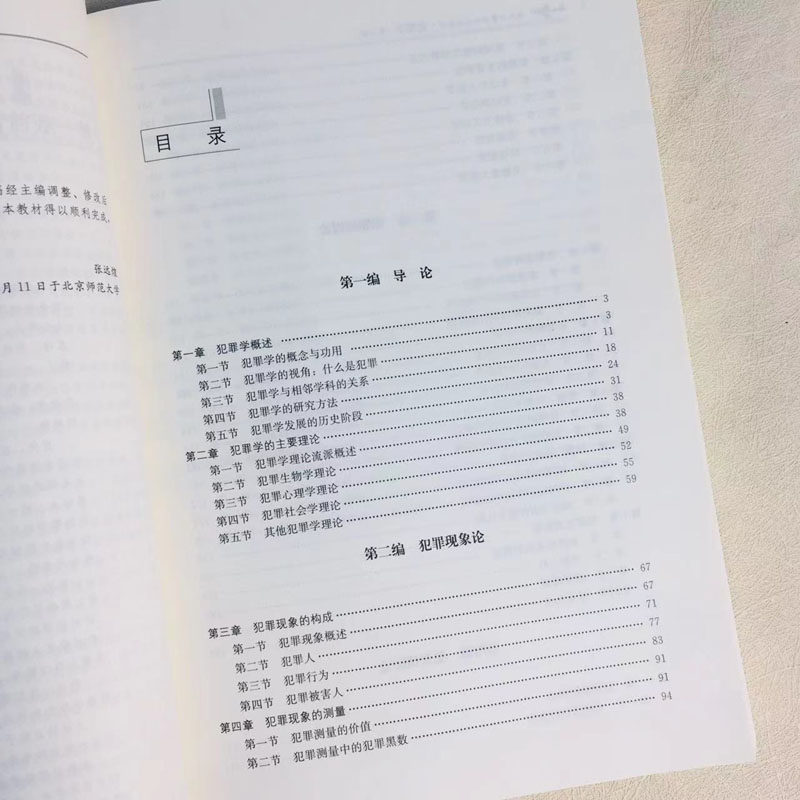 经主编调整、修改后
本教材得以顺利完成。
张远煌
月 11 日于北京师范大学
目 录
第一编 导 论
第一章 犯罪学概述 …… 3
第一节 犯罪学的概念与功用 …… 3
第二节 犯罪学的视角：什么是犯罪 …… 11
第三节 犯罪学与相邻学科的关系 …… 18
第四节 犯罪学的研究方法 …… 24
第五节 犯罪学发展的历史阶段 …… 31
第二章 犯罪学的主要理论 …… 38
第一节 犯罪学理论流派概述 …… 38
第二节 犯罪生物学理论 …… 49
第三节 犯罪心理学理论 …… 52
第四节 犯罪社会学理论 …… 55
第五节 其他犯罪学理论 …… 59
第二编 犯罪现象论
第三章 犯罪现象的构成 …… 67
第一节 犯罪现象概述 …… 67
第二节 犯罪人 …… 71
第三节 犯罪行为 …… 77
第四节 犯罪被害人 …… 83
第四章 犯罪现象的测量 …… 91
第一节 犯罪测量的价值 …… 91
第二节 犯罪测量中的犯罪黑数 …… 94